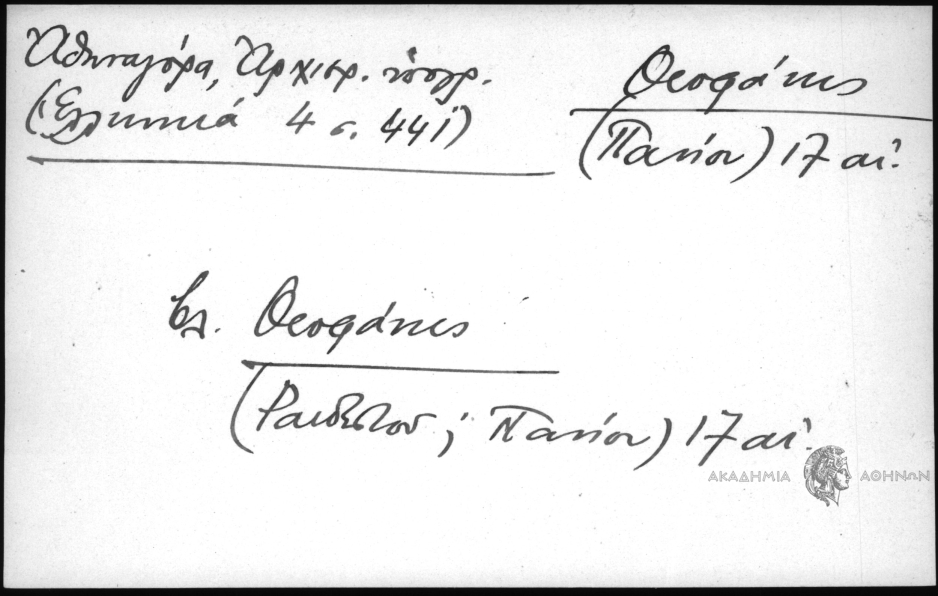 Ἀθηναγόρα, Ἀρχιερ. ὑπογρ.
(Ἑλληνικά 4 σ. 441)
Θεοφάνης
(Πανίου) 17 αἰ.
βλ. Θεοφάνης
(Ραιδεστοῦ ; Πανίου) 17 αἰ.
ΑΚΑΔΗΜΙΑ ΑΘΗΝΩΝ